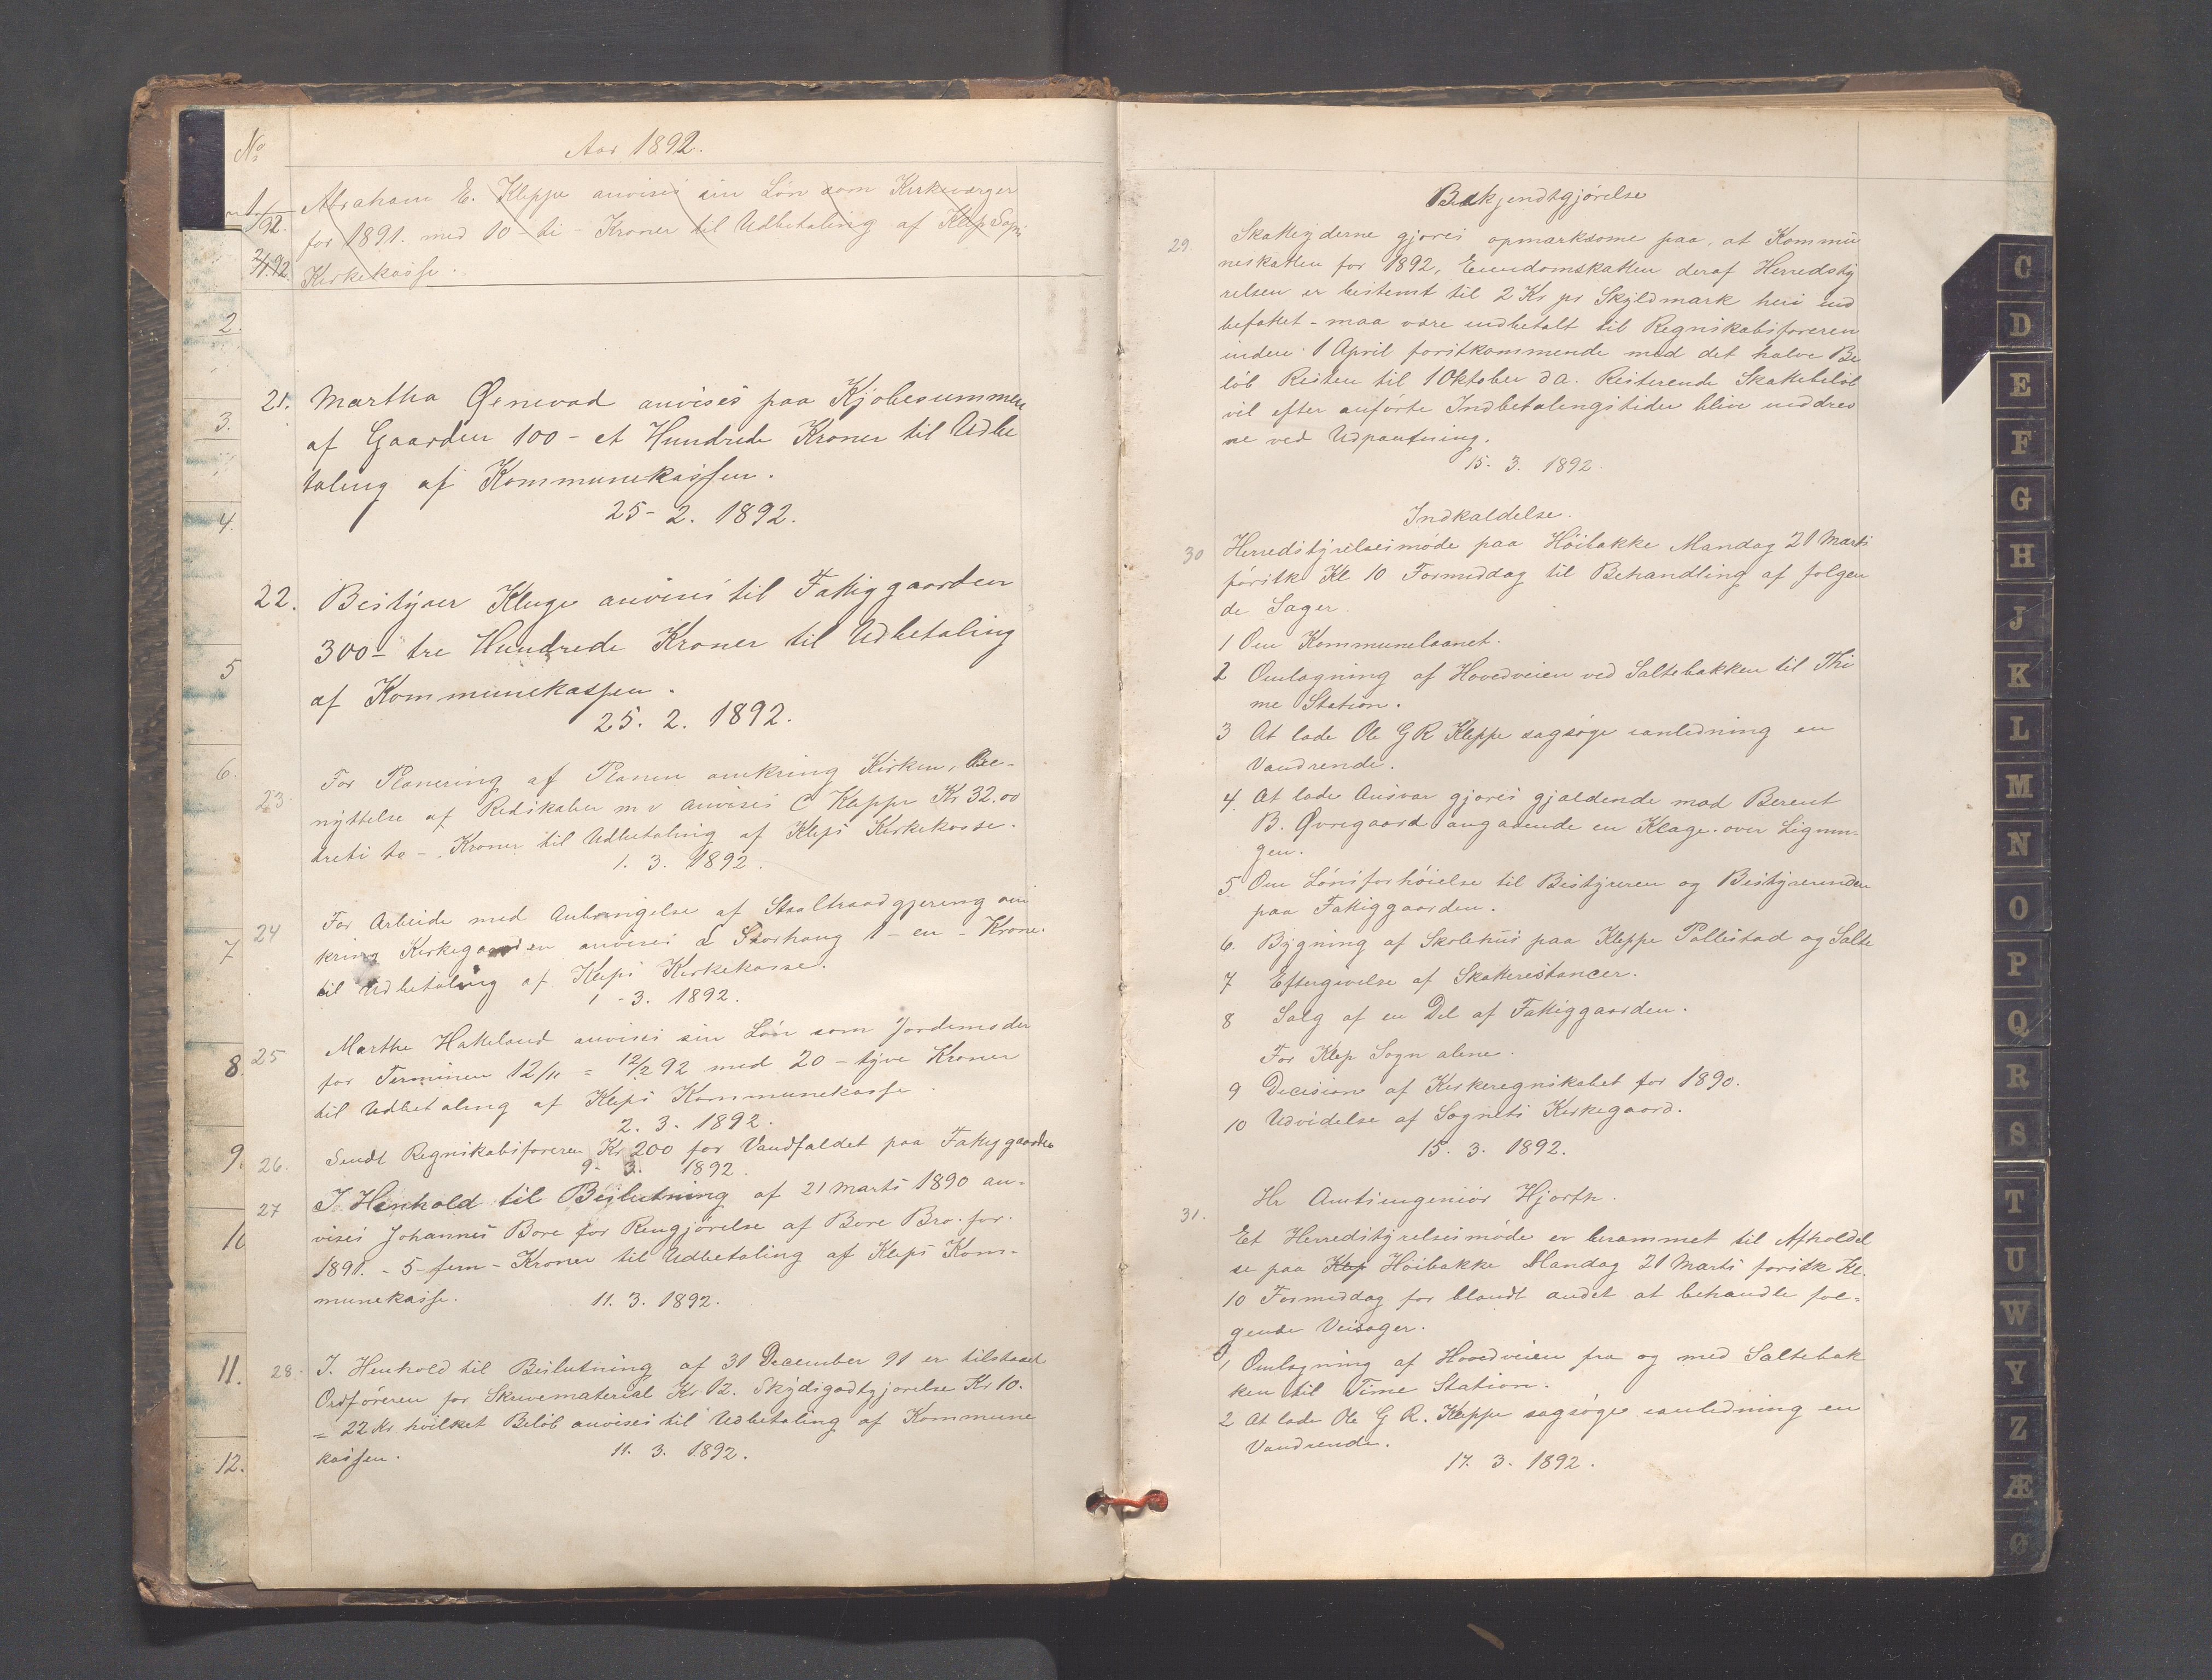 No
Aar 1892.
1/1 92.
2/1 92
Abraham E. Kleppe anvises sin Løn som Kirkeværger
for 1891. med 10 - ti - Kroner til Udbetaling af Klep Sogns
Kirkekasse.
21. Martha Øenevad anvises paa Kjøbesummen
af Gaarden 100 - et Hundrede Kroner til Udbe
taling af Kommunekassen.
25 - 2. 1892.
22. Bestyrer Kluge anvises til Fattiggaarden
300 - tre Hundrede Kroner til Udbetaling
af Kommunekassen.
25. 2. 1892.
23. For Planering af Planen omkring Kirken, Be-
nyttelse af Redskaber m v anvises C Kleppe Kr 32.00
treti to - Kroner til Udbetaling af Kleps Kirkekasse.
1. 3. 1892.
24 For Arbeide med Anbringelse af Staaltraadgjering om
kring Kirkegaarden anvises L Storhaug 1 - en - Krone.
til Udbetaling af Kleps Kirkekasse.
1 - 3. 1892.
25 Marthe Hakeland anvises sin Løn som Jordemoder
for Terminen 12/11 = 12/2 92 med 20 - tyve Kroner
til Udbetaling af Kleps Kommunekasse.
2. 3. 1892.
26. Sendt Regnskabsføreren Kr 200 for Vandfaldet paa Fattiggaarden
9. 3. 1892.
27 I Henhold til Beslutning af 21 Marts 1890 an-
vises Johannes Bore for Rengjørelse af Bore Bro. for.
1891. - 5 - fem - Kroner til Udbetaling af Kleps Kom-
munekasse. 11. 3. 1892.
28. I. Henhold til Beslutning af 31 December 91 er tilstaaet
Ordføreren for Skrivematerial Kr 12. Skydsgodtgjørelse Kr 10.
= 22 Kr hvilket Beløb anvises til Udbetaling af Kommune
kassen. 11. 3. 1892.
2.
3.
4.
5
6.
7
8.
9.
10
11.
12.
Bekjendtgjørelse
29. Skatteyderne gjøres opmærksome paa, at Kommu
neskatten for 1892, Eiendomskatten deraf Herredsty
relsen er bestemt til 2 Kr pr Skyldmark heri ind
befattet - maa være indbetalt til Regnskabsføreren
inden 1 April førstkommende med det halve Be
løb Resten til 1 Oktober d a. Resterende Skattebeløb
vil efter anførte Indbetalingstider blive inddrev
ne ved Udpantning.
15. 3. 1892.
Indkaldelse.
30 Herredstyrelsesmøde paa Høibakke Mandag 21 Marts
førstk Kl 10 Formiddag til Behandling af følgen
de Sager.
1 Om Kommunelaanet.
2 Omlægning af Hovedveien ved Saltebakken til Thi
me Station.
3 At lade Ole G R Kleppe sagsøge ianledning en
Vandrende.
4. At lade Ansvar gjøres gjældende mod Berent
B. Øvregaard angaaende en Klage over Lignin-
gen.
5 Om Lønsforhøielse til Bestyreren og Bestyrerinden
paa Fattiggaarden.
6. Bygning af Skolehus paa Kleppe Pollestad og Salte
7 Eftergivelse af Skatterestancer.
8 Salg af en Del af Fattiggaarden.
For Klep Sogn alene.
9 Decision af Kirkeregnskabet for 1890.
10 Udvidelse af Sognets Kirkegaard.
15. 3. 1892.
Hr Amtsingeniør Hjorth.
31. Et Herredstyrelsesmøde er berammet til Afholdel
se paa Klep Høibakke Mandag 21 Marts førstk Kl.
10 Formiddag for blandt andet at behandle føl-
gende Veisager.
1 Omlægning af Hovedveien fra og med Saltebak
ken til Time Station.
2 At lade Ole G R. Kleppe sagsøge ianledning en
Vandrende.
17. 3. 1892.
C
D
E
F
G
H
J
K
L
M
N
O
P
Q
R
S
T
U
W
Y
Z
Æ
Ø